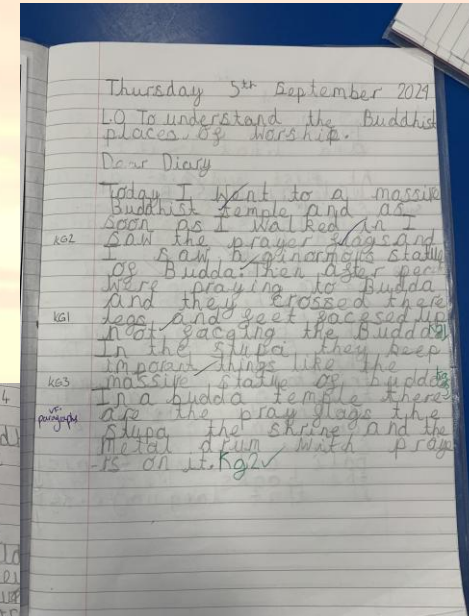 Thursday 5th September 2024
L.O To understand the Buddhist
places of worship.
Dear Diary
Today I went to a massive
Buddhist temple and as
soon as I walked in I
KG2 saw the prayer flags and
I saw a ginormous statue
of Budda. Then after
were praying to Budda
and they crossed there
KG1 legs and feet
not the Budda KG1
In the stupa they keep
things like the
KG3 massive statue of budda
In a budda temple there
vf paragraphs are the pray flags the
stupa the shrine and the
metal drum pray
rs on it. Kg2 ✓
4